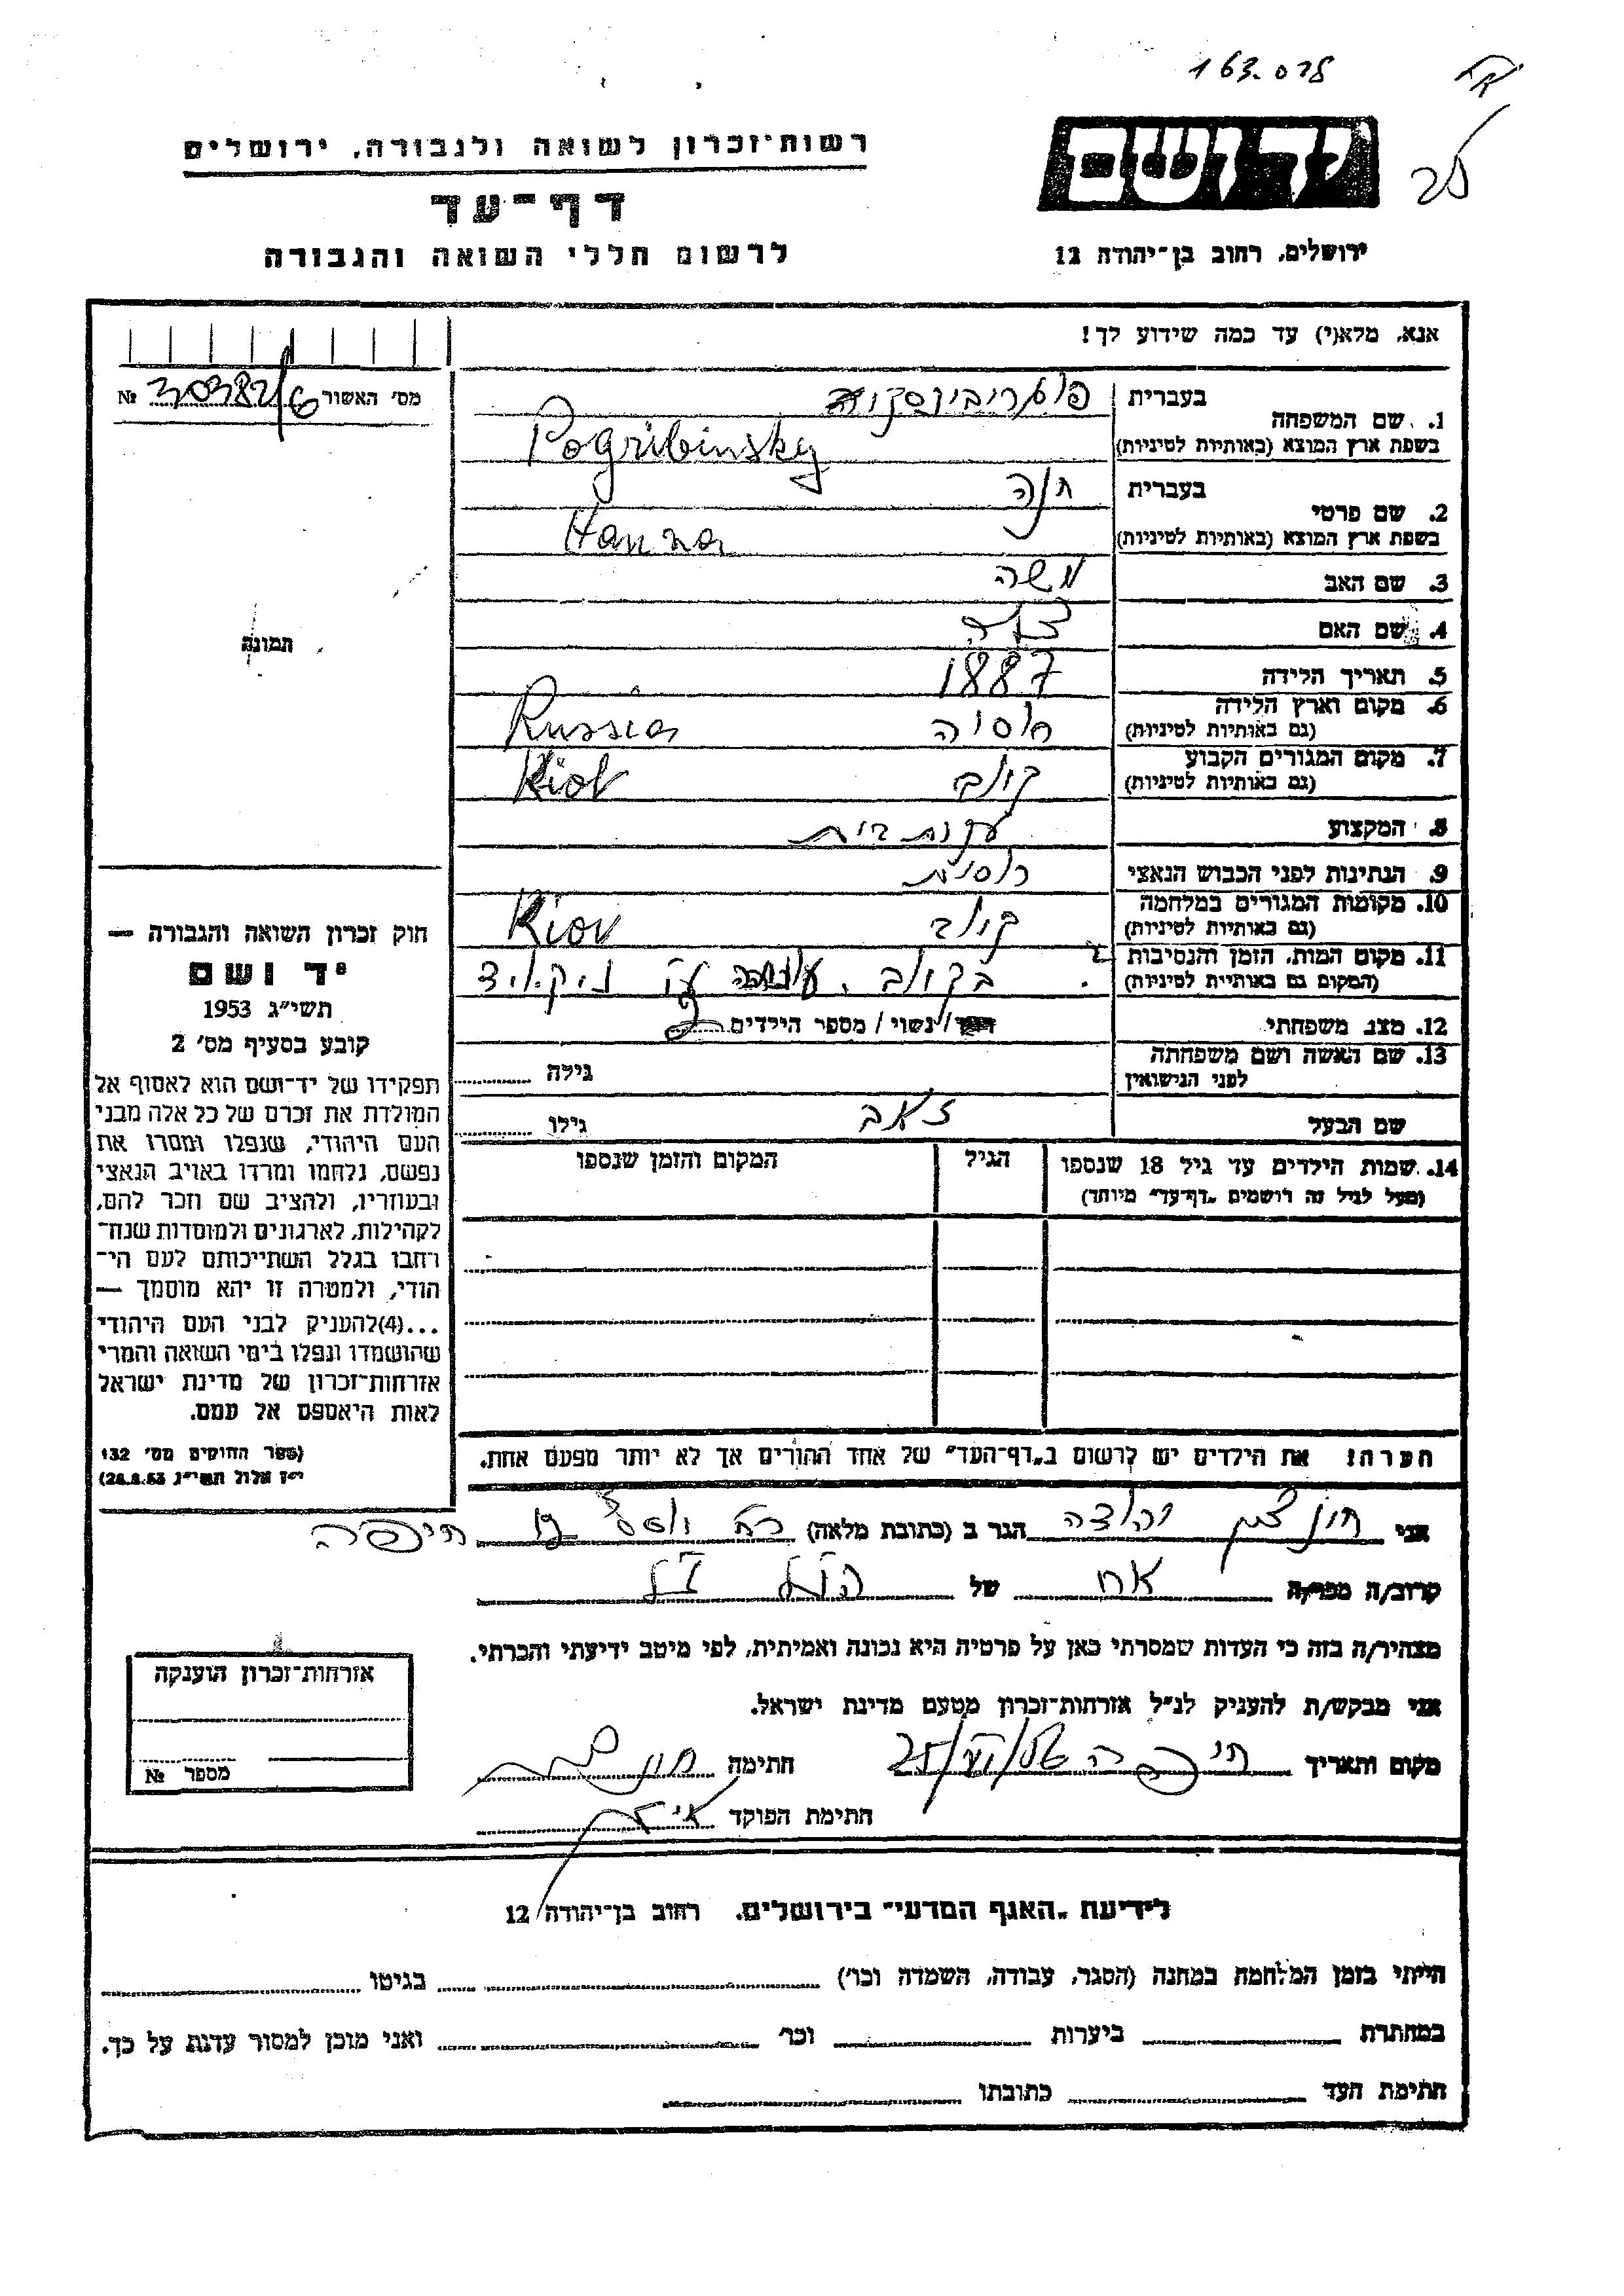 163.058
רשות־זכרון לשואה ולגבורה, ירושלים
יד ושם
דף־עד
לרשום חללי השואה והגבורה
ירושלים, רחוב בן־יהודה 12
אנא, מלא(י) עד כמה שידוע לך!
מס׳ האשור 30382/6 №
1. שם המשפחה
בעברית
בשפת ארץ המוצא (באותיות לטיניות) Pogribinsky
2. שם פרטי
בעברית חנה
בשפת ארץ המוצא (באותיות לטיניות) Hanna
3. שם האב משה
4. שם האם
5. תאריך הלידה 1887
6. מקום וארץ הלידה
(גם באותיות לטיניות) רוסיה Russia
7. מקום המגורים הקבוע
(גם באותיות לטיניות) קיוב Kiov
8. המקצוע עקרת בית
9. הנתינות לפני הכבוש הנאצי רוסית
10. מקומות המגורים במלחמה
(גם באותיות לטיניות) קיוב Kiov
11. מקום המות, הזמן והנסיבות
(המקום גם באותיות לטיניות) בקיוב.
12. מצב משפחתי /נשוי/ מספר הילדים
13. שם האשה ושם משפחתה
לפני הנישואין
גילה
שם הבעל זאב גילו
14. שמות הילדים עד גיל 18 שנספו
(מעל לגיל זה רושמים „דף־עד״ מיוחד)
הגיל
המקום והזמן שנספו
הערה: את הילדים יש לרשום ב„דף־העד״ של אחד ההורים אך לא יותר מפעם אחת.
תמונה
חוק זכרון השואה והגבורה —
יד ושם
תשי״ג 1953
קובע בסעיף מס׳ 2
תפקידו של יד־ושם הוא לאסוף אל
המולדת את זכרם של כל אלה מבני
העם היהודי, שנפלו ומסרו את
נפשם, נלחמו ומרדו באויב הנאצי
ובעוזריו, ולהציב שם וזכר להם,
לקהילות, לארגונים ולמוסדות שנח־
רבו בגלל השתייכותם לעם הי־
הודי, ולמטרה זו יהא מוסמך —
...(4)להעניק לבני העם היהודי
שהושמדו ונפלו בימי השואה והמרי
אזרחות־זכרון של מדינת ישראל
לאות היאספם אל עמם.
(ספר החוקים מס׳ 132
י״ז אלול תשי״ג 28.8.53)
אני יהודה הגר ב (כתובת מלאה) חיפה
קרוב/ה מכר/ה אח של
מצהיר/ה בזה כי העדות שמסרתי כאן על פרטיה היא נכונה ואמיתית, לפי מיטב ידיעתי והכרתי.
אני מבקש/ת להעניק לנ״ל אזרחות־זכרון מטעם מדינת ישראל.
מקום ותאריך חיפה חתימה
חתימת הפוקד
אזרחות־זכרון הוענקה
מספר №
לידיעת „האגף המדעי״ בירושלים, רחוב בן־יהודה 12
הייתי בזמן המלחמה במחנה (הסגר, עבודה, השמדה וכו׳) בגיטו
במחתרת ביערות וכו׳ ואני מוכן למסור עדות על כך.
חתימת העד כתובתו